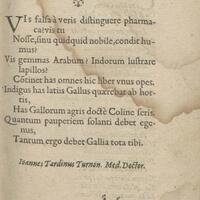 VIs falsa à veris distinguere pharma-
ca? vis tu
Nosse, sinu quidquid nobile, condit hu-
mus?
Vis gemmas Arabum? Indorum lustrare
lapillos?
Cōtinet has omnes hic liber vnus opes.
Indigus has latiis Gallus quærebat ab hor-
tis,
Has Gallorum agris doctè Coline seris.
Quantum pauperiem solanti debet ege-
nus,
Tantum, ergo debet Gallia tota tibi.
Ioannes Tardinus Turnon. Med. Doctor.